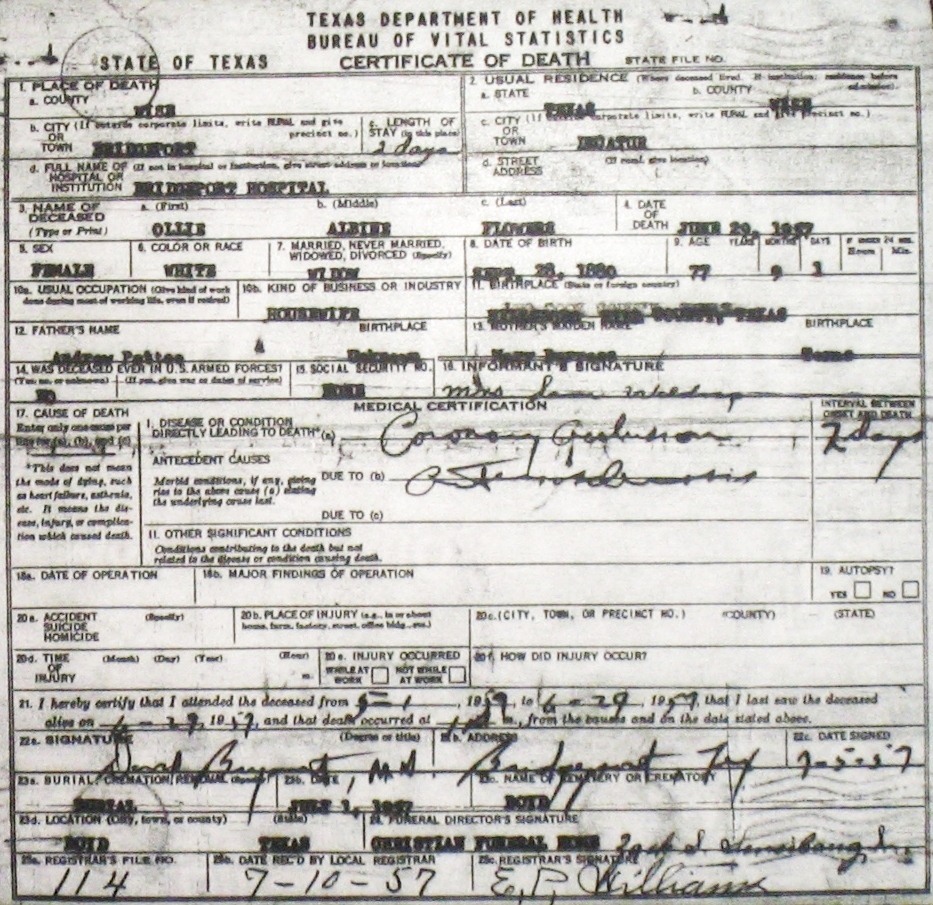 TEXAS DEPARTMENT OF HEALTH
BUREAU OF VITAL STATISTICS
STATE OF TEXAS CERTIFICATE OF DEATH STATE FILE NO.
1. PLACE OF DEATH
a. COUNTY WISE
2. USUAL RESIDENCE (Where deceased lived. If institution, residence before admission).
a. STATE TEXAS b. COUNTY WISE
b. CITY (If outside corporate limits, write RURAL and give precinct no.)
OR
TOWN BRIDGEPORT
c. LENGTH OF STAY (in this place)
2 days
c. CITY (If outside corporate limits, write RURAL and give precinct no.)
OR
TOWN DECATUR
d. FULL NAME OF (If not in hospital or institution, give street address or location)
HOSPITAL OR
INSTITUTION BRIDGEPORT HOSPITAL
d. STREET ADDRESS (If rural, give location)
3. NAME OF DECEASED (Type or Print)
a. (First) b. (Middle) c. (Last)
OLLIE FLOWERS
4. DATE OF DEATH JUNE 29, 1957
5. SEX
FEMALE
6. COLOR OR RACE
WHITE
7. MARRIED, NEVER MARRIED, WIDOWED, DIVORCED (Specify)
WIDOW
8. DATE OF BIRTH
SEPT. 28, 1880
9. AGE YEARS MONTHS DAYS IF UNDER 24 HRS. Hours Min.
77 9 1
10a. USUAL OCCUPATION (Give kind of work done during most of working life, even if retired)
10b. KIND OF BUSINESS OR INDUSTRY
HOUSEWIFE
11. BIRTHPLACE (State or foreign country)
COUNTY, TEXAS
12. FATHER'S NAME BIRTHPLACE
Andrew Patton Unknown
13. MOTHER'S MAIDEN NAME BIRTHPLACE
14. WAS DECEASED EVER IN U.S. ARMED FORCES?
(Yes, no, or unknown) (If yes, give war or dates of service)
NO
15. SOCIAL SECURITY NO.
NONE
16. INFORMANT'S SIGNATURE
Mrs Sam
MEDICAL CERTIFICATION
INTERVAL BETWEEN ONSET AND DEATH
17. CAUSE OF DEATH
Enter only one cause per line for (a), (b), and (c)
*This does not mean the mode of dying, such as heart failure, asthenia, etc. It means the disease, injury, or complication which caused death.
1. DISEASE OR CONDITION DIRECTLY LEADING TO DEATH* (a) Coronary Occlusion 2 days
ANTECEDENT CAUSES
Morbid conditions, if any, giving rise to the above cause (a) stating the underlying cause last.
DUE TO (b)
DUE TO (c)
11. OTHER SIGNIFICANT CONDITIONS
Conditions contributing to the death but not related to the disease or condition causing death.
18a. DATE OF OPERATION
18b. MAJOR FINDINGS OF OPERATION
19. AUTOPSY?
YES NO
20a. ACCIDENT (Specify)
SUICIDE
HOMICIDE
20b. PLACE OF INJURY (e.g., in or about home, farm, factory, street, office bldg., etc.)
20c. (CITY, TOWN, OR PRECINCT NO.) (COUNTY) (STATE)
20d. TIME (Month) (Day) (Year) (Hour)
OF
INJURY m.
20e. INJURY OCCURRED
WHILE AT WORK NOT WHILE AT WORK
20f. HOW DID INJURY OCCUR?
21. I hereby certify that I attended the deceased from 5-1, 1957, to 6-29, 1957, that I last saw the deceased
alive on 6-29, 1957, and that death occurred at m., from the causes and on the date stated above.
22a. SIGNATURE (Degree or title)
David Bryant, MD
22b. ADDRESS
Bridgeport Tex
22c. DATE SIGNED
7-5-57
23a. BURIAL, CREMATION, REMOVAL (Specify)
BURIAL
23b. DATE
JULY 1, 1957
23c. NAME OF CEMETERY OR CREMATORY
BOYD
23d. LOCATION (City, town, or county) (State)
BOYD TEXAS
24. FUNERAL DIRECTOR'S SIGNATURE
CHRISTIAN FUNERAL HOME
25a. REGISTRAR'S FILE NO.
114
25b. DATE REC'D BY LOCAL REGISTRAR
7-10-57
25c. REGISTRAR'S SIGNATURE
E. P. Williams